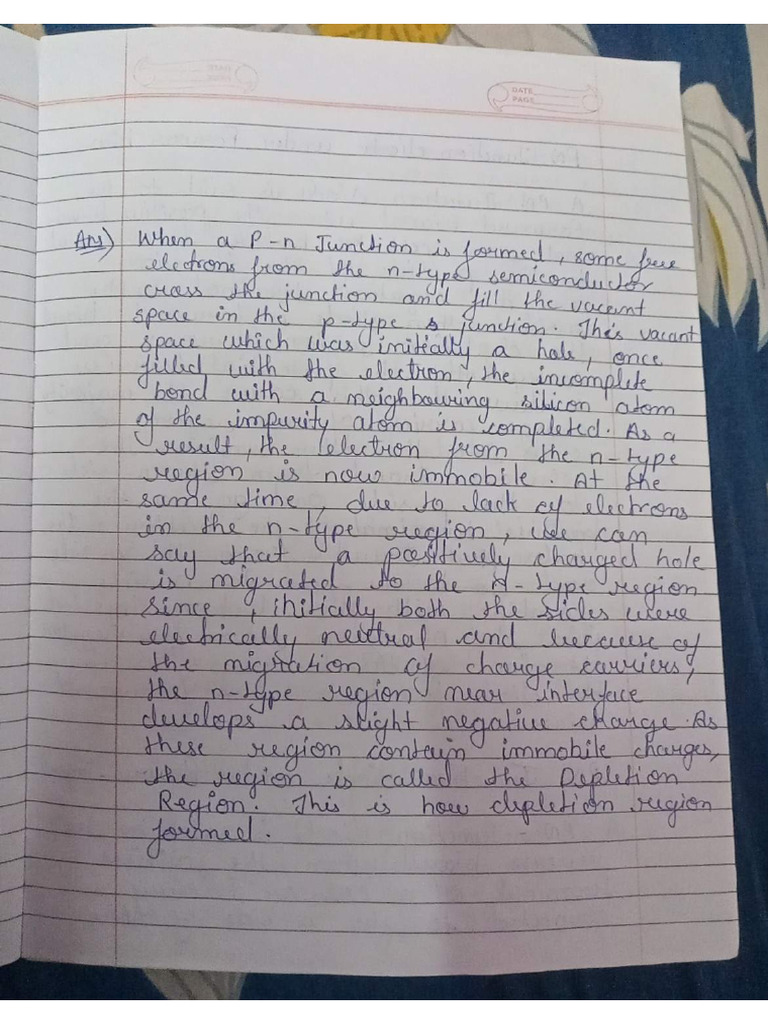 DATE
PAGE
Ans) When a P-n Junction is formed, some free
electrons from the n-type semiconductor
cross the junction and fill the vacant
space in the p-type junction. This vacant
space which was initially a hole, once
filled with the electron, the incomplete
bond with a neighbouring silicon atom
of the impurity atom is completed. As a
result, the electron from the n-type
region is now immobile. At the
same time, due to lack of electrons
in the n-type region, we can
say that a positively charged hole
is migrated to the n-type region
since, initially both the sides were
electrically neutral and because of
the migration of charge carriers,
the n-type region near interface
develops a slight negative charge. As
these region contain immobile charges,
the region is called the Depletion
Region. This is how depletion region
formed.